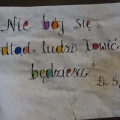 Nie bój się
odtąd ludzi łowić
będziesz
Łk 5,